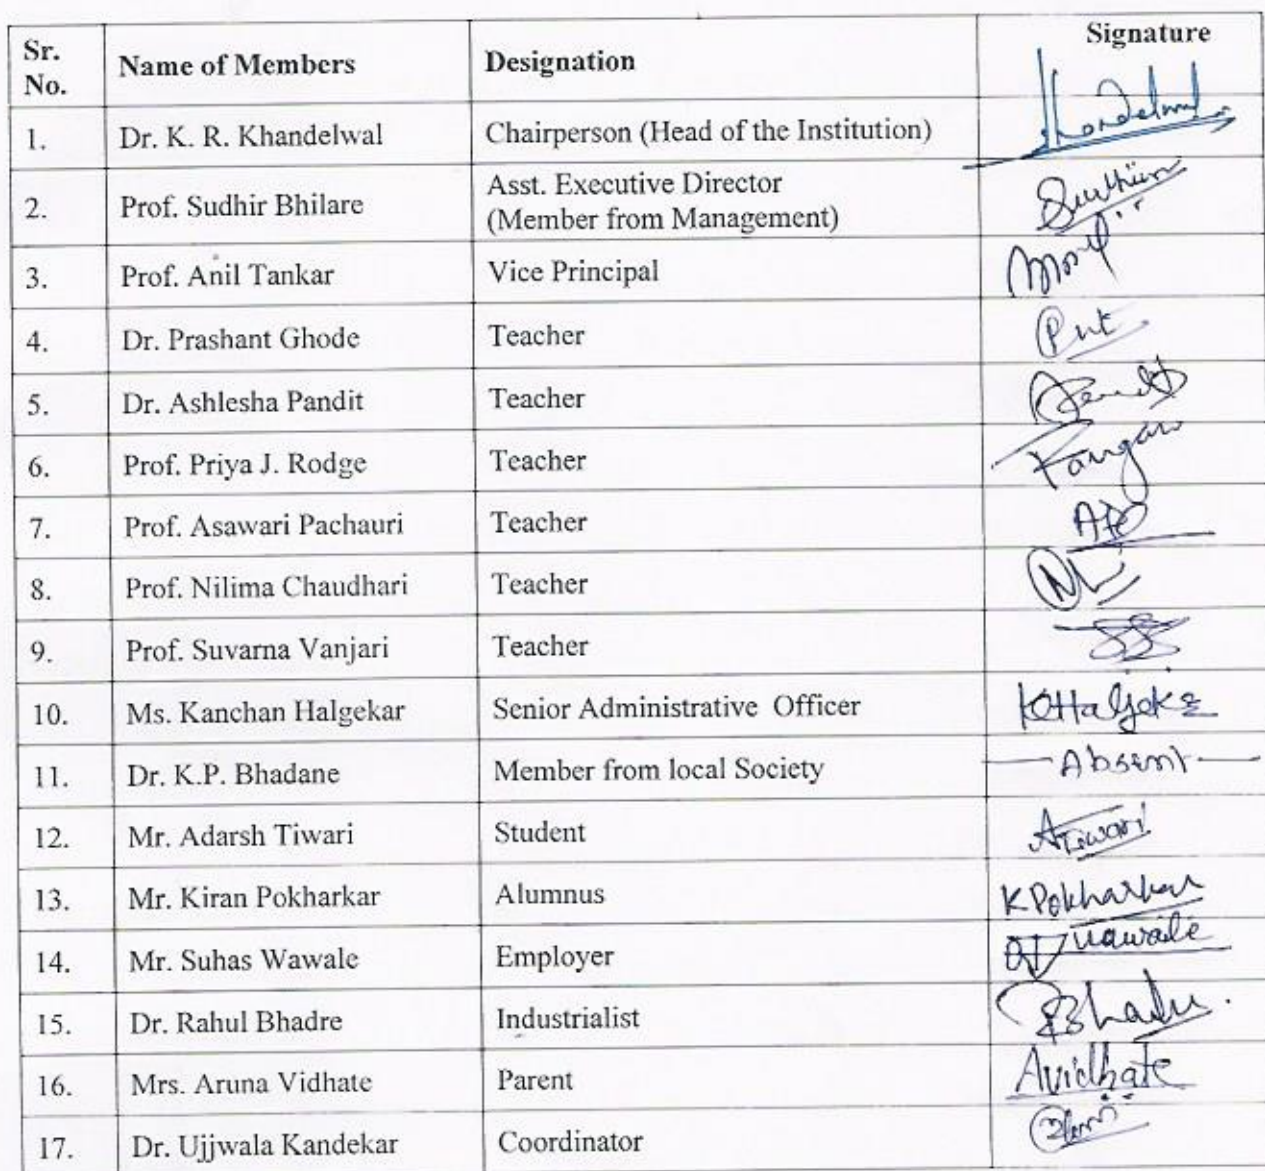 Sr. No. Name of Members Designation Signature
1. Dr. K. R. Khandelwal Chairperson (Head of the Institution) Khandelwal
2. Prof. Sudhir Bhilare Asst. Executive Director
(Member from Management)
3. Prof. Anil Tankar Vice Principal
4. Dr. Prashant Ghode Teacher
5. Dr. Ashlesha Pandit Teacher
6. Prof. Priya J. Rodge Teacher
7. Prof. Asawari Pachauri Teacher
8. Prof. Nilima Chaudhari Teacher
9. Prof. Suvarna Vanjari Teacher
10. Ms. Kanchan Halgekar Senior Administrative Officer
11. Dr. K.P. Bhadane Member from local Society Absent
12. Mr. Adarsh Tiwari Student ATiwari
13. Mr. Kiran Pokharkar Alumnus K Pokharkar
14. Mr. Suhas Wawale Employer
15. Dr. Rahul Bhadre Industrialist
16. Mrs. Aruna Vidhate Parent Avidhate
17. Dr. Ujjwala Kandekar Coordinator